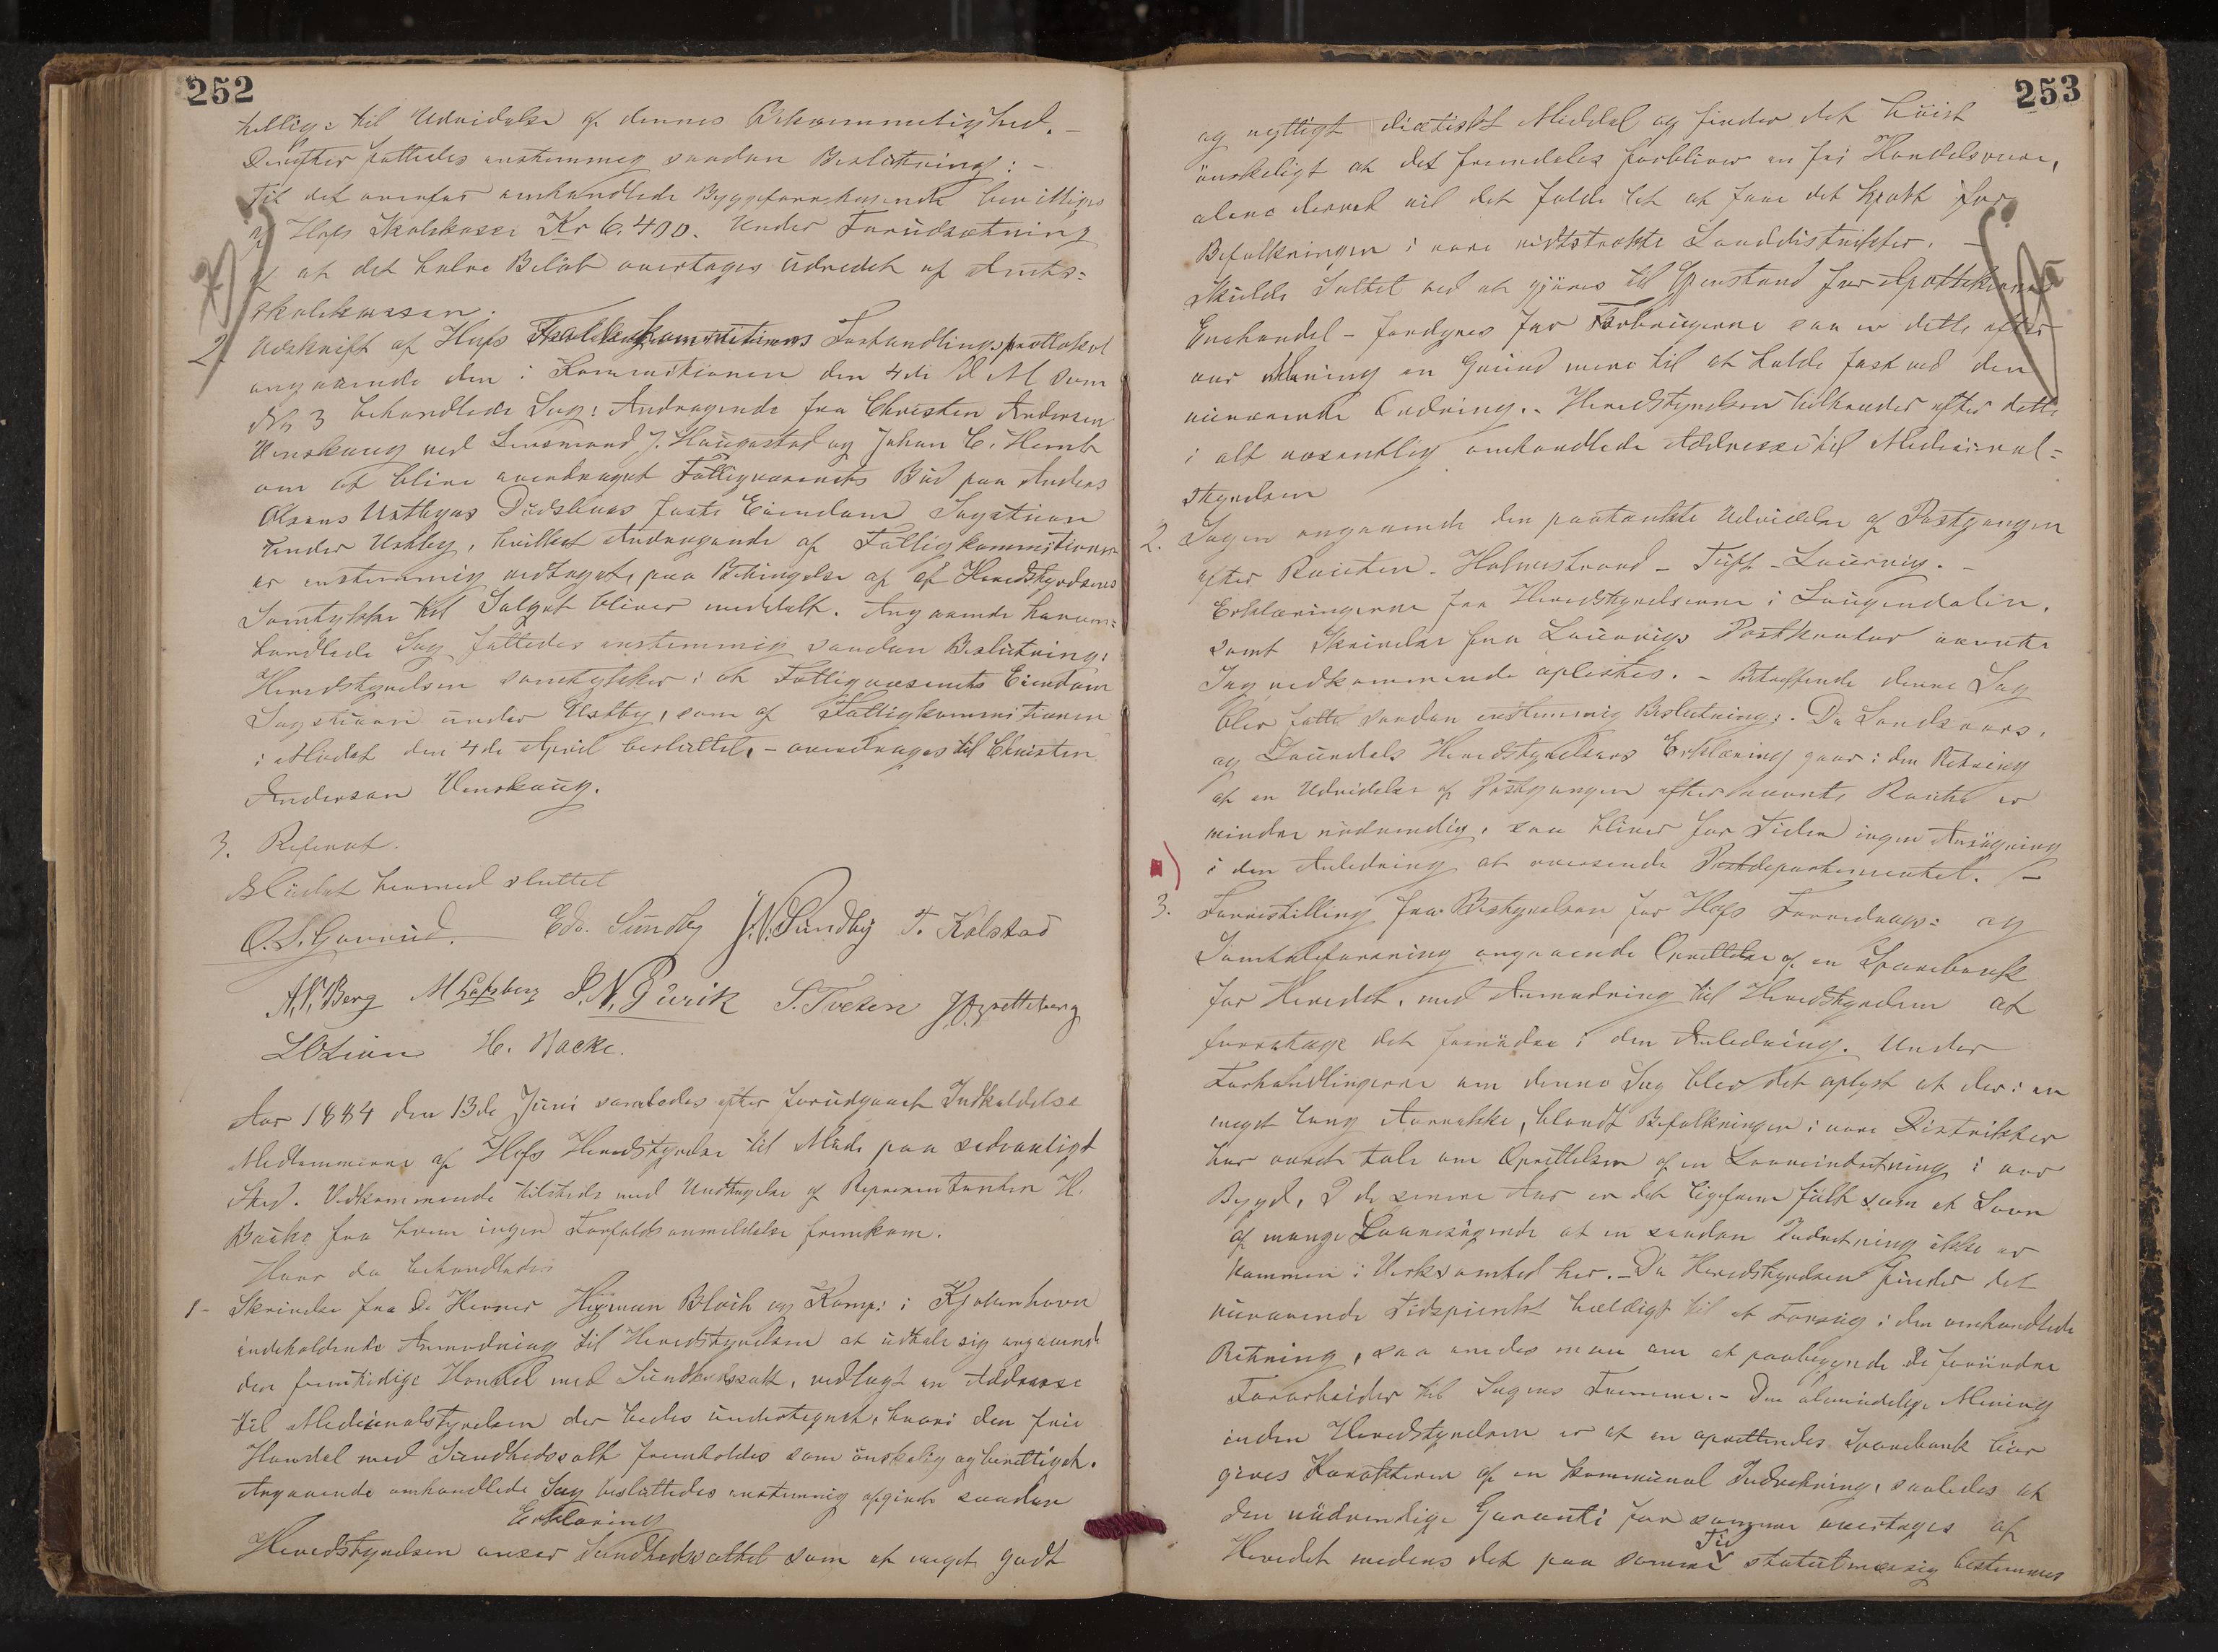 252
tillige til Udvidelse af dennes Bekvemmelighed. –
Derefter fattedes enstemmig saadan Beslutning: –
Til det ovenfor omhandlede Byggeforetagende bevilliges
af Hofs Skolekasse Kr 6.400. Under Forudsætning
af at det halve Beløb overtages udredet af Amts=
skolekassen.
2. Udskrift af Hofs Fattigkommissions Forhandlingsprotokol
angaaende den i Kommissionen den 4de d. M. som
No 3 behandlede Sag: Andragende fra Christen Andersen
Venskaug ved Lensmand J. Haugestad og Johan C. Hemb
om at blive overdraget Fattigvæsenets Bud paa Anders
Olsens Østbyes Dødsboes faste Eiendom Sagstuen
under Østby, hvilket Andragende af Fattigkommissionen
er enstemmig vedtaget, paa Betingelse af at Heredstyrelsens
Samtykke til Salget bliver meddelt. Angaaende heromhandlede
Sag fattedes enstemmig saadan Beslutning:
Heredstyrelsen samtykker i at Fattigvæsenets Eiendom
Sagstuen under Østby, som af Fattigkommissionen
i Mødet den 4de April besluttet, – overdrages til Christen
Andersen Venskaug.
3. Referat.
Mødet hermed sluttet
O. S. Gunnerud. Edv. Sundby J. N. Sundby T. Kolstad
A. P. Berg M Hofsberg P. N. Purik S. Tveten
L O Lien H. Backe.
Aar 1884 den 13de Juni samledes efter forudgaaet Indkaldelse
Medlemmerne af Hofs Heredstyrelse til Møde paa sedvanligt
Sted. Vedkommende tilstede med Undtagelse af Repræsentanten H.
Backe fra hvem ingen Forfaldsanmeldelse fremkom.
Hvor da behandledes
1- Skrivelse fra de Herrer Heyman Bloch og Komp: i Kjøbenhavn
indeholdende Anmodning til Heredstyrelsen at udtale sig angaaende
den fremtidige Handel med Sundhedssalt, vedlagt en Addresse
til Medicinalstyrelsen der bedes undertegnet, hvori den frie
Handel med Sundhedssalt fremholdes som ønskelig og berettiget.
Angaaende omhandlede Sag besluttedes enstemmig afgivet saadan
Erklæring
Heredstyrelsen anser Sundhedssaltet som et meget godt
253
og nyttigt diætiskt Middel og finder det høist
ønskeligt at det fremdeles forbliver en fri Handelsvare,
alene derved vil det falde let at faae det spredt for
Befolkningen i vore vidtstrakte Landdistrikter. –
Skulde Saltet ved at gjøres til Gjenstand for Apothekernes
Enehandel – fordyres for Forbrugerne saa er dette efter
vor Mening en Grund mere til at holde fast ved den
nuværende Ordning. - Heredstyrelsen tiltræder efter dette
i alt væsentlig omhandlede Addresse til Medicinal=
styrelsen
2. Sagen angaaende den paatænkte Udvidelse af Postgangen
efter Routen - Holmestrand - Tuft - Laurvig. -
Erklæringerne fra Heredstyrelserne i Laugendalen,
samt Skrivelse fra Laurvigs Postkontor nævnte
Sag vedkommende oplæstes. - Betræffende denne Sag
blev fattet saadan enstemmig Beslutning: - Da Sandsværs,
og Laurdals Heredstyrelsers Erklæring gaar i den Retning
at en Udvidelse af Postgangen efter nævnte Route er
mindre nødvendig, saa bliver for Tiden ingen Ansøgning
i den Anledning at oversende Postdepartementet. –
3. Forestilling fra Bestyrelsen for Hofs Foredrags= og
Samtaleforening angaaende Oprettelse af en Sparebank
for Heredet, med Anmodning til Heredstyrelsen at
foretage det fornødne i den Anledning. Under
Forhandlingerne om denne Sag blev det oplyst at der i en
meget lang Aarrække, blandt Befolkningen i vore Distrikter
har været tale om Oprettelsen af en Laaneindretning i vor
Bygd. I de senere Aar er det ligefrem følt som et Savn
af mange Laanesøgende at en saadan Indretning ikke er
kommen i Virksomhed her. - Da Heredstyrelsen finder det
nuværende Tidspunkt heldigt til et Forsøg i den omhandlede
Retning, saa enedes man om at paabegynde de fornødne
Forarbeider til Sagens Fremme. - Den almindelige Mening
inden Heredstyrelsen er at en oprettendes Sparebank bør
gives Karakteren af en kommunal Indretning, saaledes at
den nødvendige Garanti for samme overtages af
Heredet medens det paa samme Tid statutmæssig bestemmes